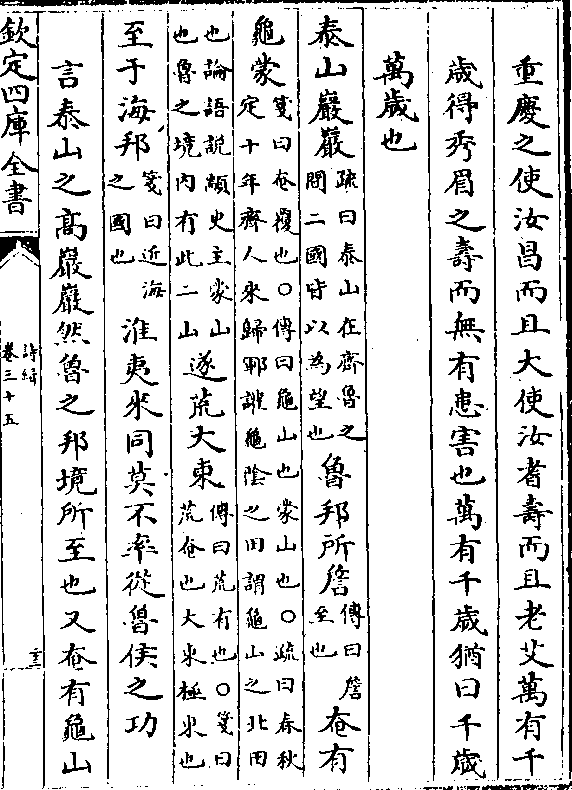 重慶之使汝昌而且大使汝耆壽而且老艾萬有千
歲得秀眉之壽而無有患害也萬有千歲猶曰千歲
萬歲也
泰山巖巖疏曰泰山在齊魯之間二國皆以為望也魯邦所詹傳曰詹至也奄有
龜蒙箋曰奄覆也○傳曰龜山也蒙山也○疏曰春秋定十年齊人來歸鄆讙龜陰之田謂龜山之北田
也論語說顓臾主蒙山也魯之境內有此二山遂荒大東傳曰荒有也○箋曰荒奄也大東極東也
至于海邦箋曰近海之國也淮夷來同莫不率從魯侯之功
言泰山之高巖巖然魯之邦境所至也又奄有龜山
欽定四庫全書
詩緝
卷三十五